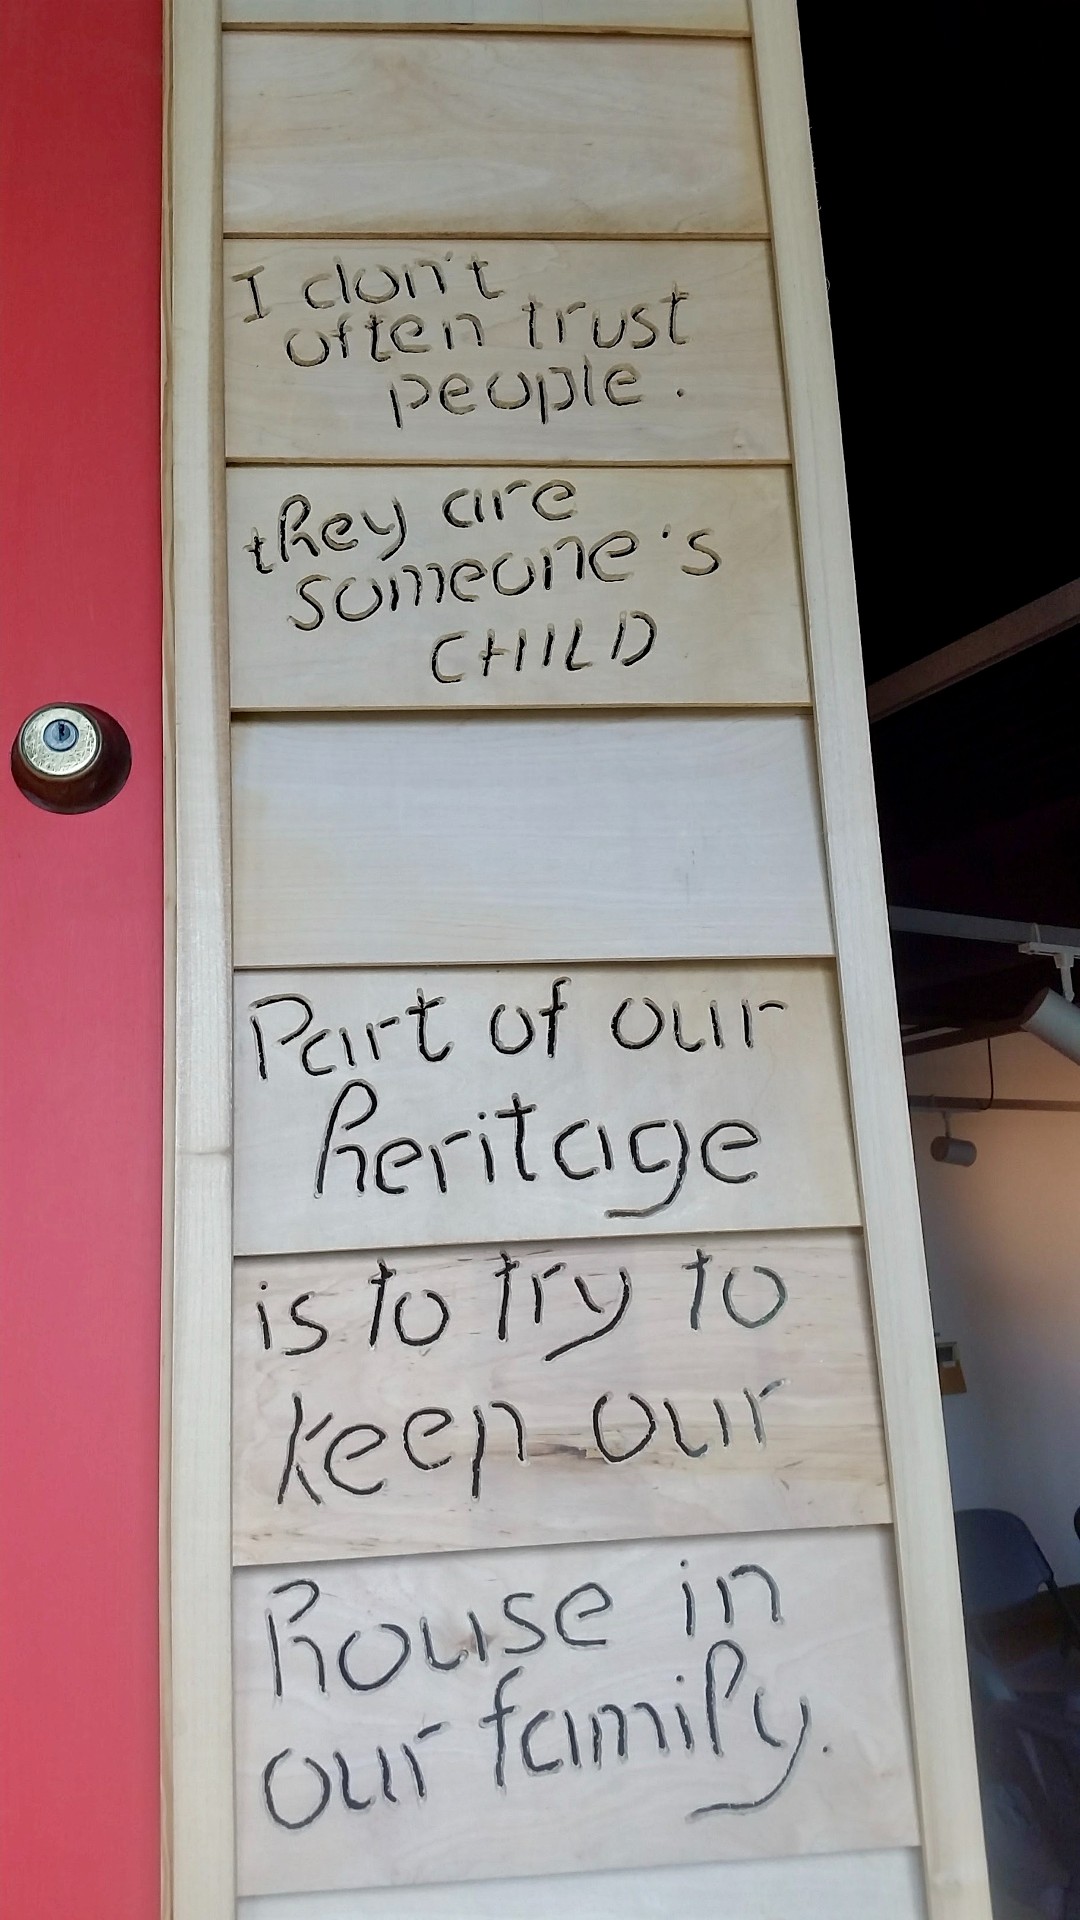 I don't
often trust
people.
they are
someone's
CHILD
Part of our
heritage
is to try to
keep our
house in
our family.